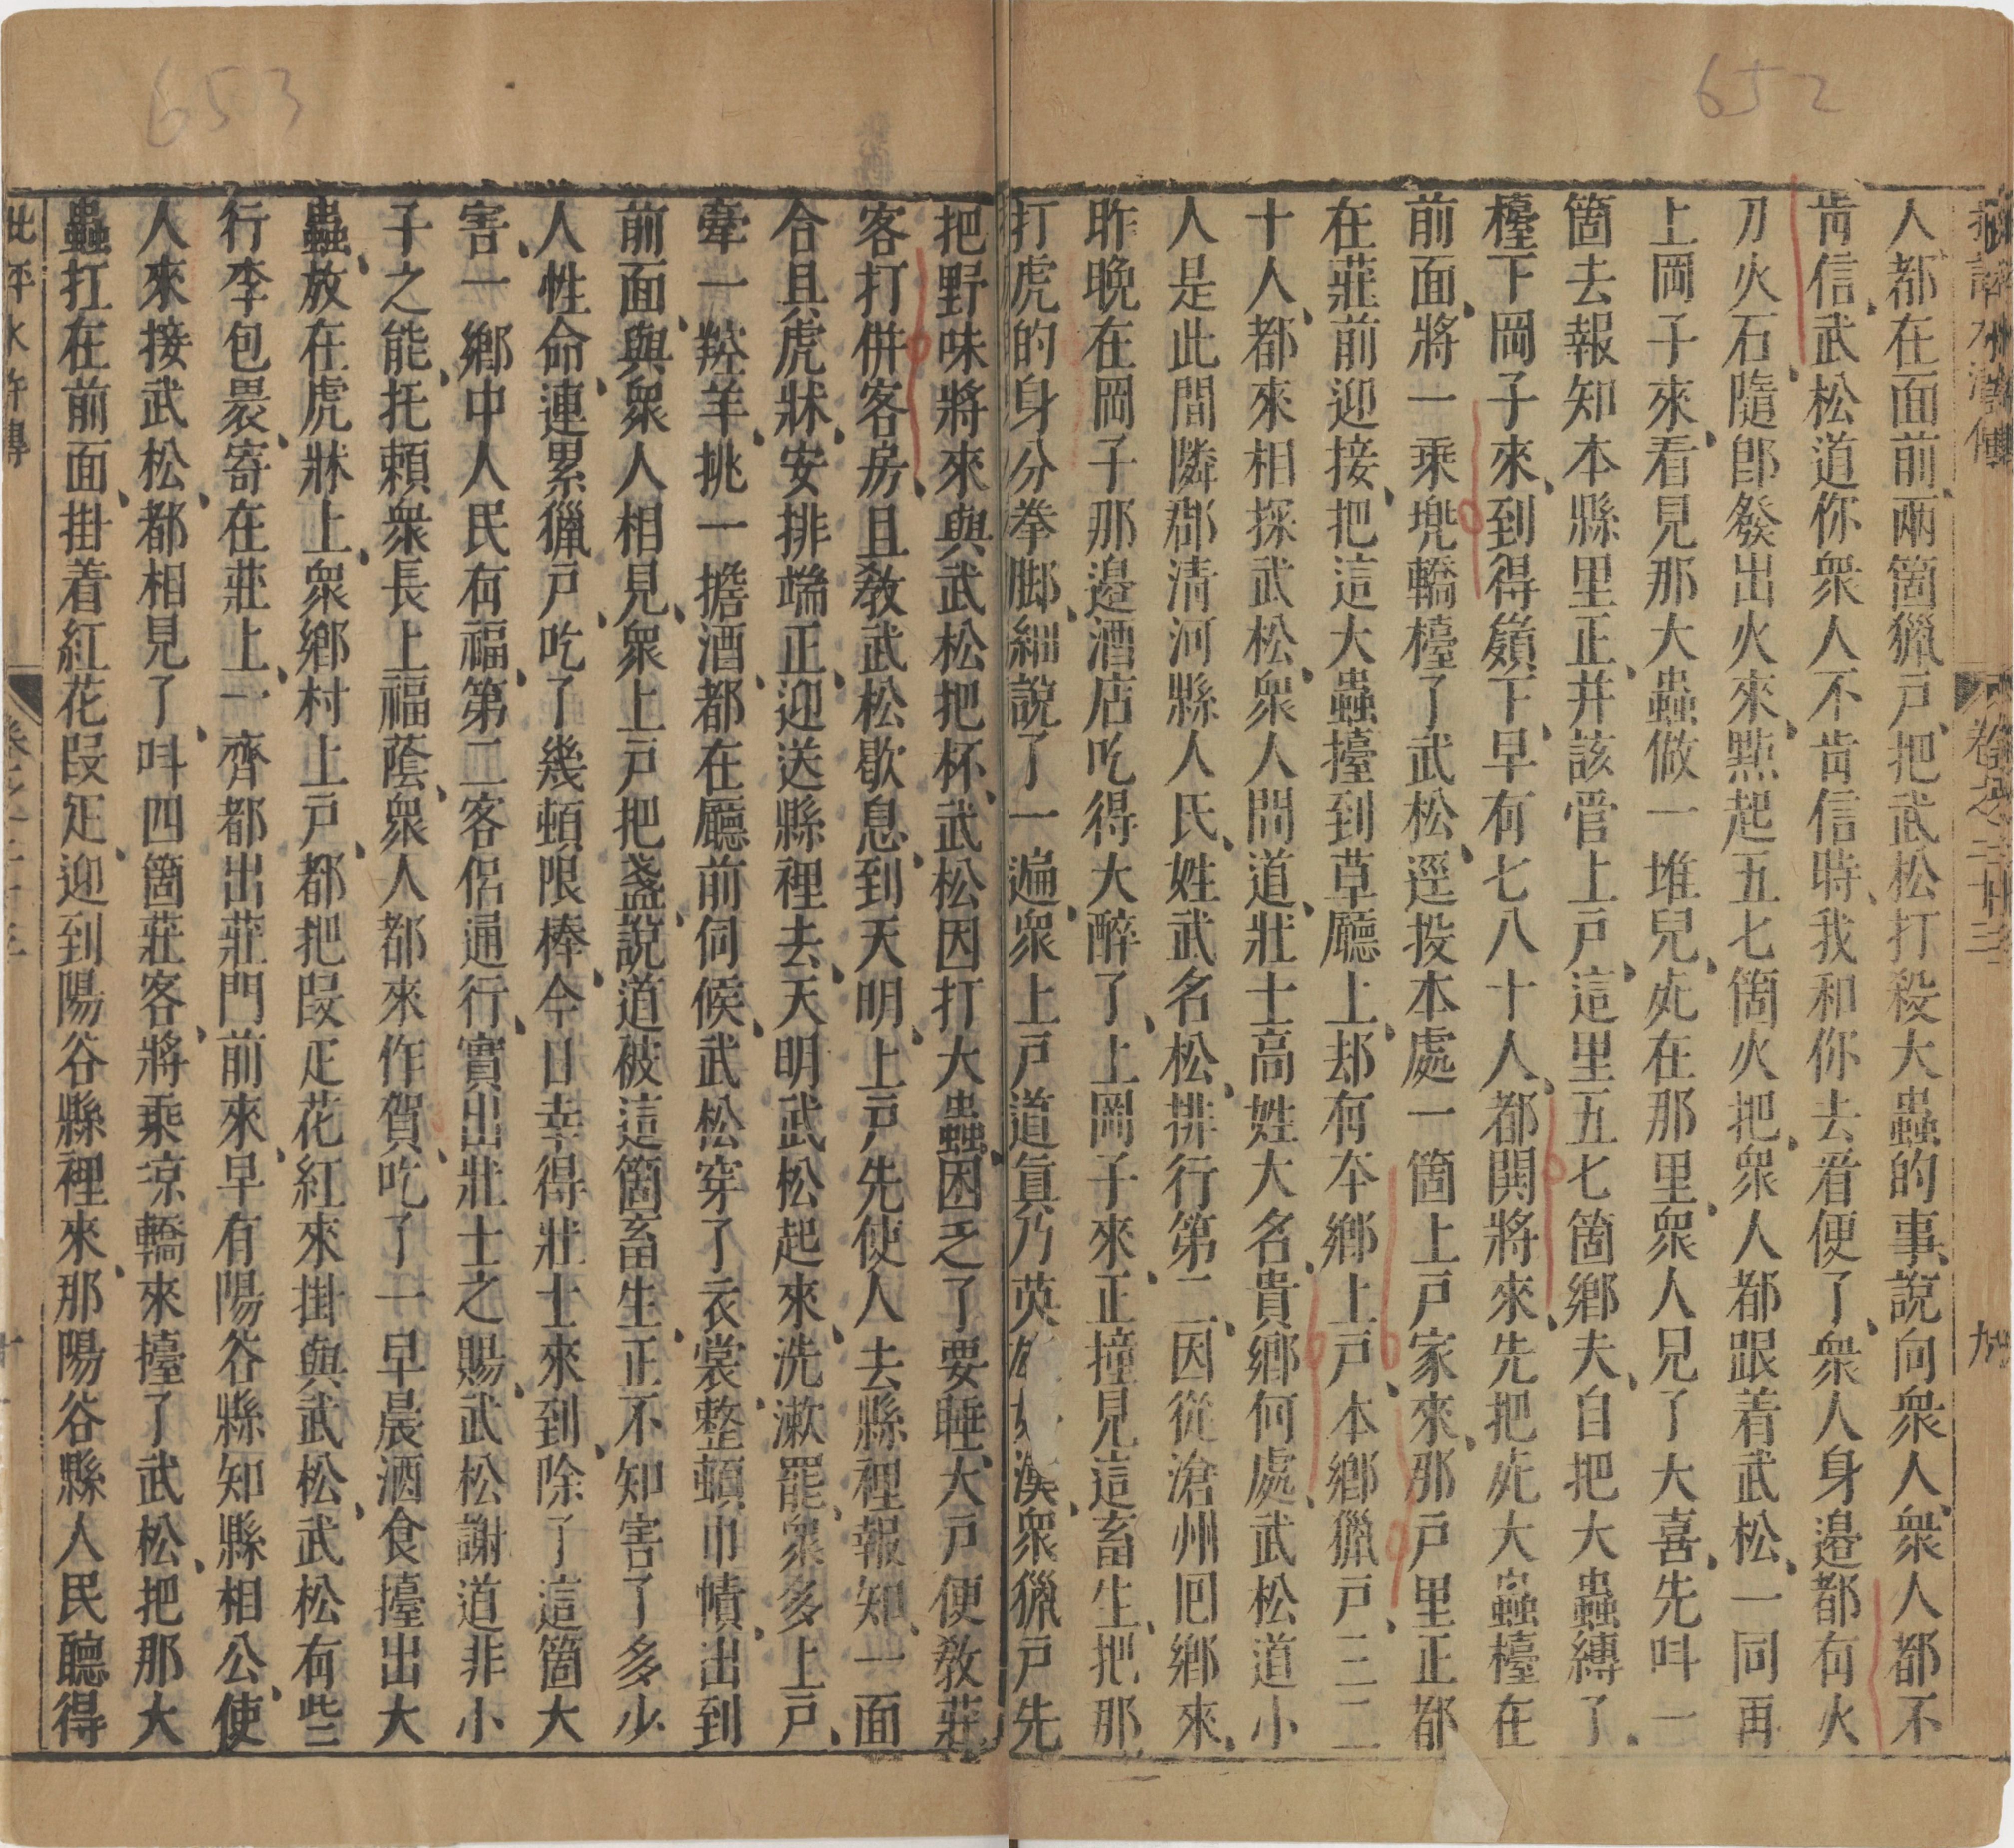 652
653
人都在面前、兩箇獵戶、把武松打殺大蟲的事、說向衆人、衆人都不
肯信、武松道你衆人不肯信時、我和你去看便了、衆人身邉都有火
刀火石、隨即發出火來、點起五七箇火把、衆人都跟着武松、一同再
上岡子來、看見那大蟲做一堆兒、死在那里、衆人見了大喜、先呌一
箇去報知本縣里正、并該管上戶、這里五七箇鄉夫、自把大蟲縛了、
擡下岡子來、到得嶺下、早有七八十人、都閧將來、先把死大蟲擡在
前面、將一乘兠轎擡了武松、逕投本處一箇上戶家來、那戶里正都
在莊前迎接、把這大蟲擡到草廳上、却有本鄉上戶、本鄉獵戶、三二
十人、都來相探武松、衆人問道、壯士高姓大名、貴鄉何處、武松道小
人是此間隣郡清河縣人氏、姓武名松、排行第二、因從滄州囘鄉來、
昨晚在岡子那邉酒店吃得大醉了、上岡子來、正撞見這畜生、把那
打虎的身分拳脚、細說了一遍、衆上戶道眞乃英 漢、衆獵戶先
把野味將來與武松把杯、武松因打大蟲困乏了要睡、大戶便敎莊
客打併客房、且敎武松歇息、到天明、上戶先使人去縣裡報知、一面
合具虎牀、安排端正、迎送縣裡去、天明武松起來、洗漱罷、衆多上戶、
牽一羫羊、挑一擔酒、都在廳前伺候、武松穿了衣裳、整頓巾幘、出到
前面、與衆人相見、衆上戶把盞、說道被這箇畜生、正不知害了多少
人性命、連累獵戶、吃了幾頓限棒、今日幸得壯士來到、除了這箇大
害、一鄉中人民有福、第二客侶通行、實出壯士之賜、武松謝道非小
子之能、托賴衆長上福蔭、衆人都來作賀、吃了一早晨酒食擡出大
蟲、放在虎牀上、衆鄉村上戶、都把段疋花紅來掛與武松、武松有些
行李包裹、寄在莊上、一齊都出莊門前來、早有陽谷縣知縣相公、使
人來接武松、都相見了、呌四箇莊客、將乘凉轎來擡了武松、把那大
蟲扛在前面、掛着紅花段疋、迎到陽谷縣裡來、那陽谷縣人民聽得